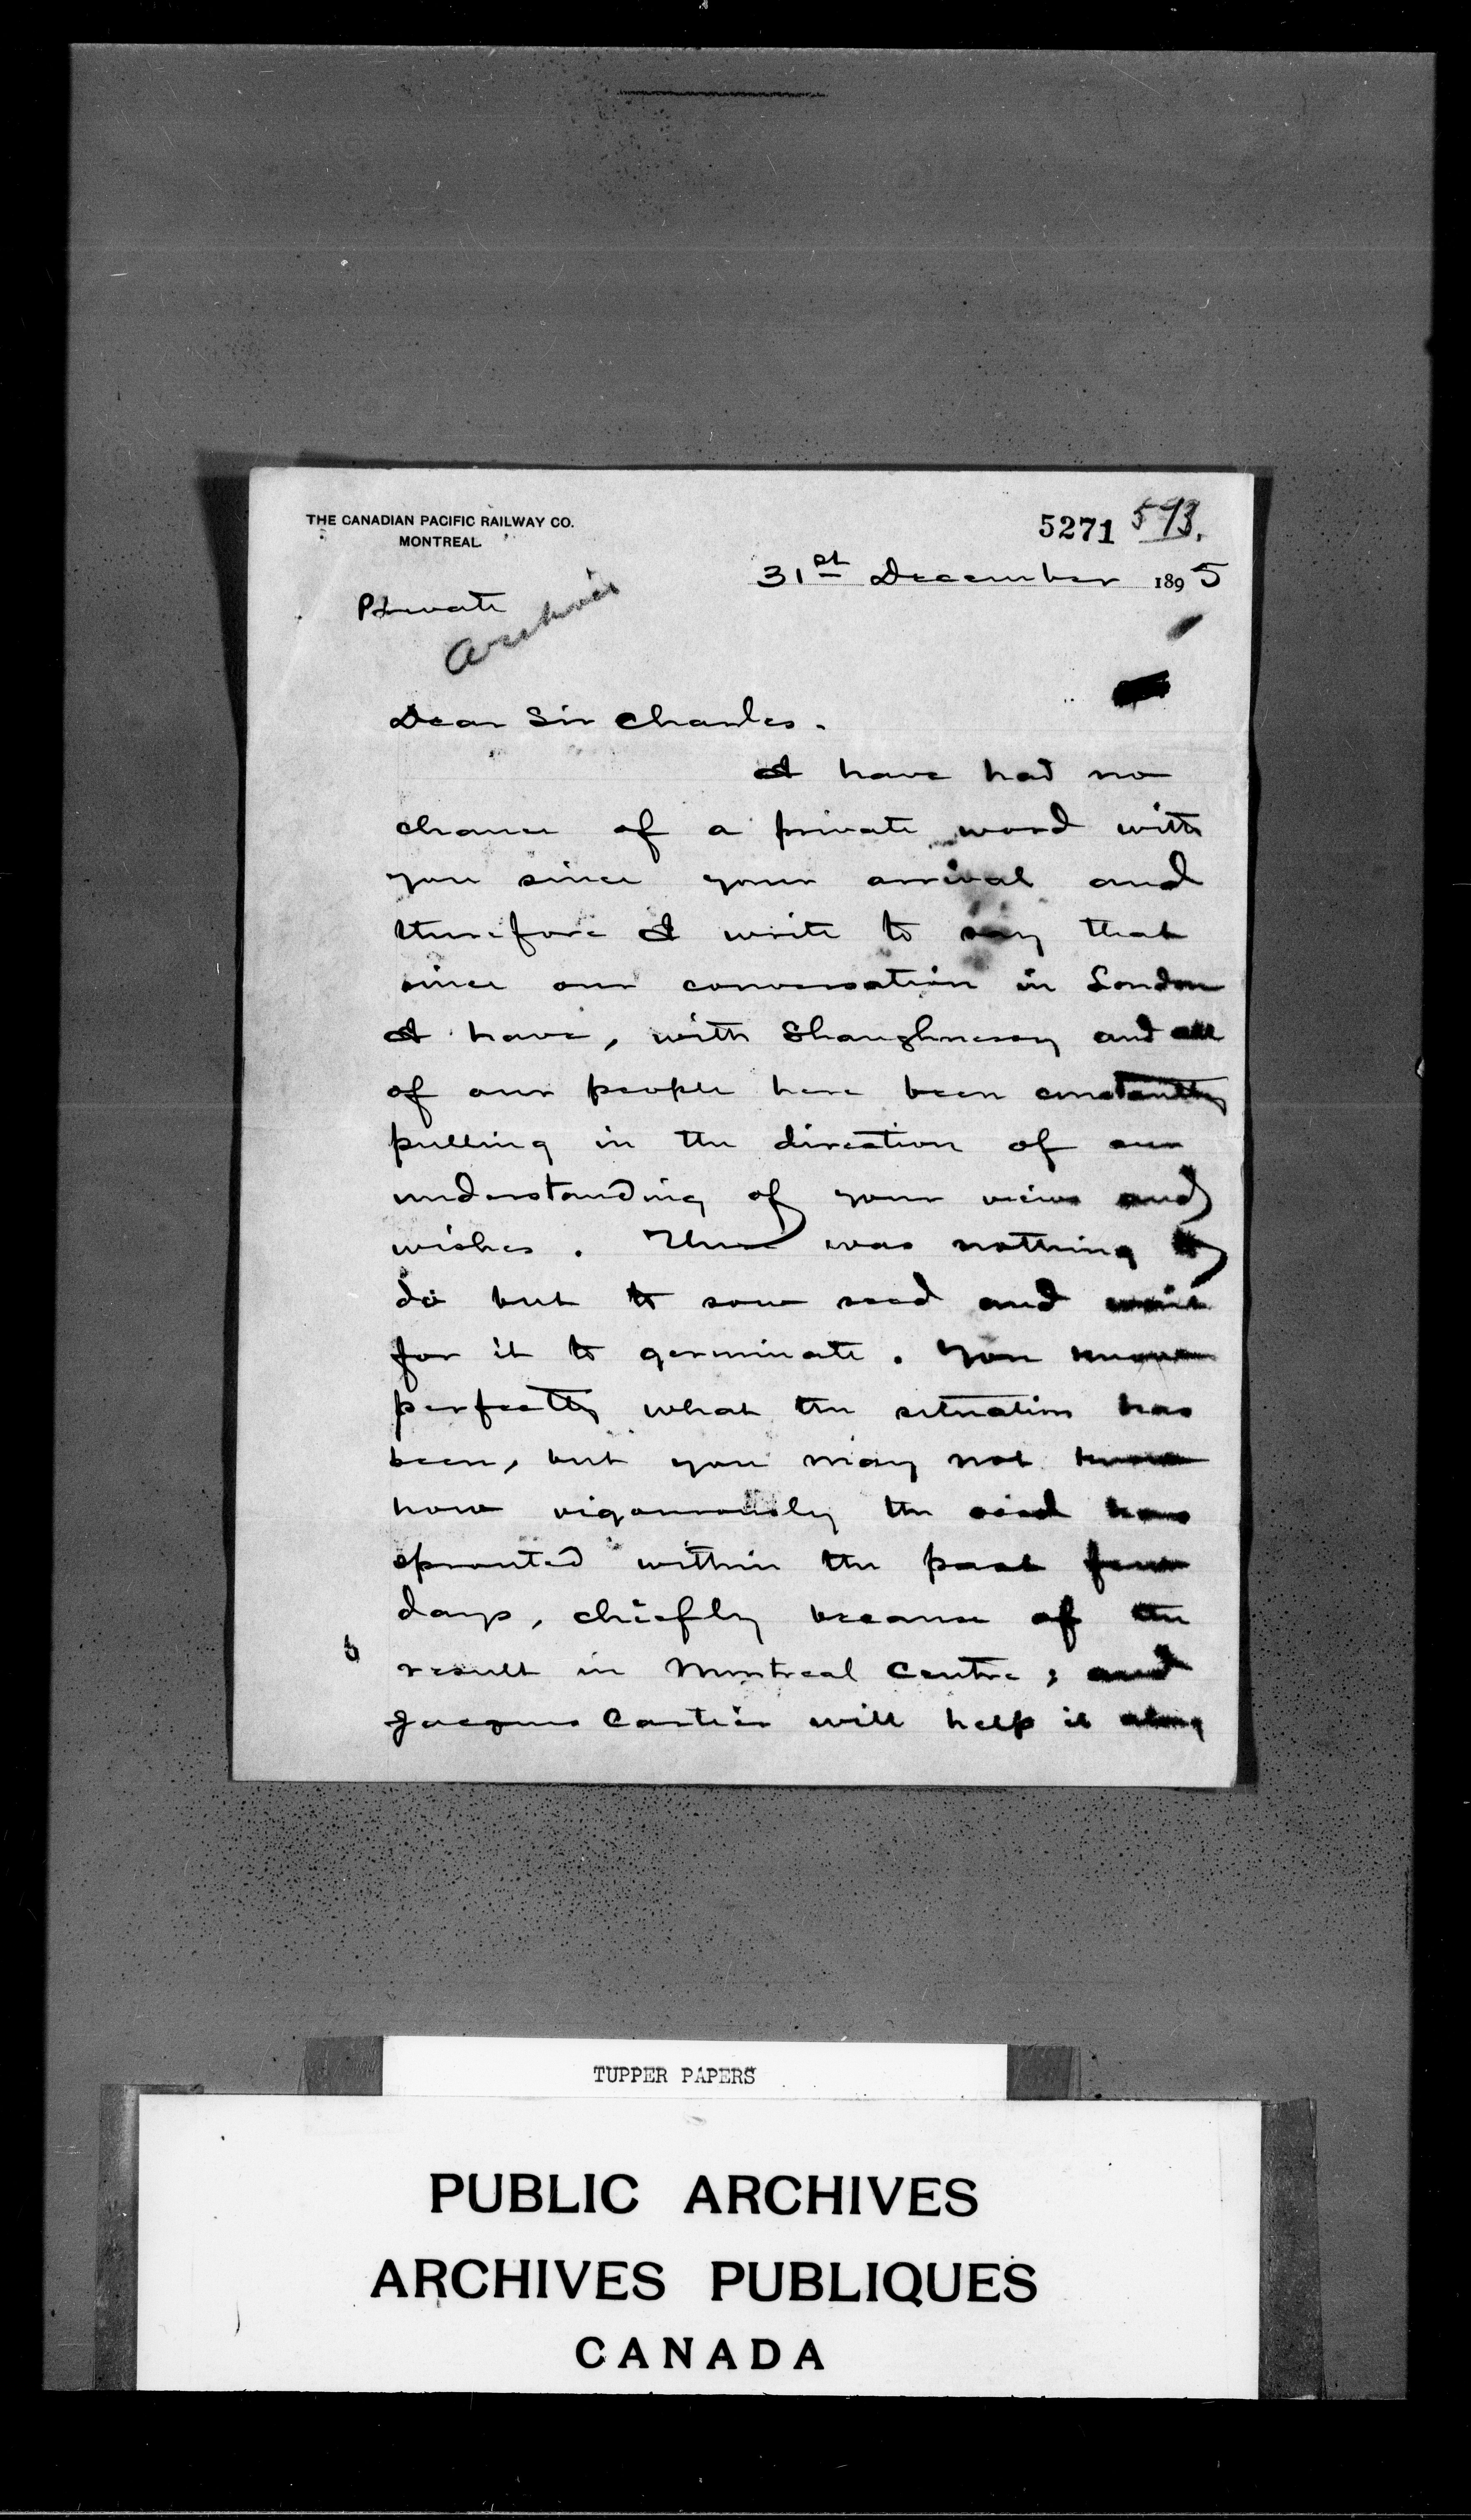 THE CANADIAN PACIFIC RAILWAY CO.
MONTREAL
5271 593.
31st December 1895
Private
Archives
Dear Sir Charles.
I have had no
chance of a private word with
you since your arrival and
therefore I write to say that
since our conversation in London
I have, with Shaughnessy and all
of our people here been constantly
pulling in the direction of our
understanding of your views and
wishes. There was nothing to
do but to sow seed and wait
for it to germinate. You know
perfectly what the situation has
been, but you may not know
how vigorously the seed has
sprouted within the past few
days, chiefly because of the
result in Montreal Centre; and
Jacques Cartier will help it along
TUPPER PAPERS
PUBLIC ARCHIVES
ARCHIVES PUBLIQUES
CANADA